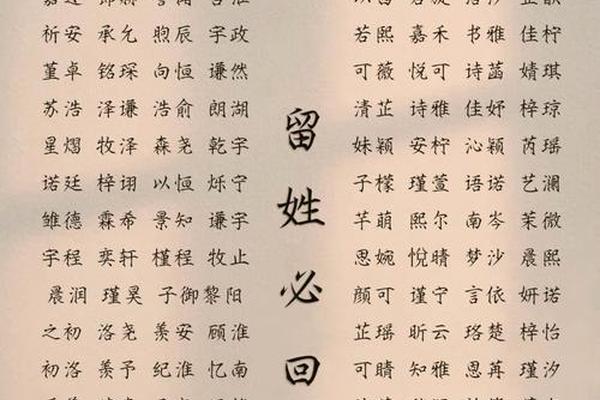 祈安 承允 煦辰 宇政
堇卓 铭琛 向恒 谦然
苏浩 泽谦 浩俞 朗湖
星熠 牧泽 森尧 乾宇
诺廷 梓诩 以恒 烁宁
雏德 霖希 景知 谦宇
宇程 奕轩 槿程 牧止
晨润 瑾昊 子御黎阳
之初 洛尧 羡安 顾淮
初洛 羡予 纪淮 忆南
留姓必回
若熙 嘉禾 书雅 佳柠
可薇 悦可 诗菡 婧琪
清芷 诗雅 佳妤 梓琼
妹颖 安柠 沁颖 芮瑶
子檬 瑾萱 语诺 艺澜
芊萌 熙尔 南岑 茉微
思婉 悦晴 梦沙 晨熙
颜可 瑾宁 言依 妍诺
芷瑶 昕云 珞楚 梓怡
可晴 知雅 恩苒 瑾汐